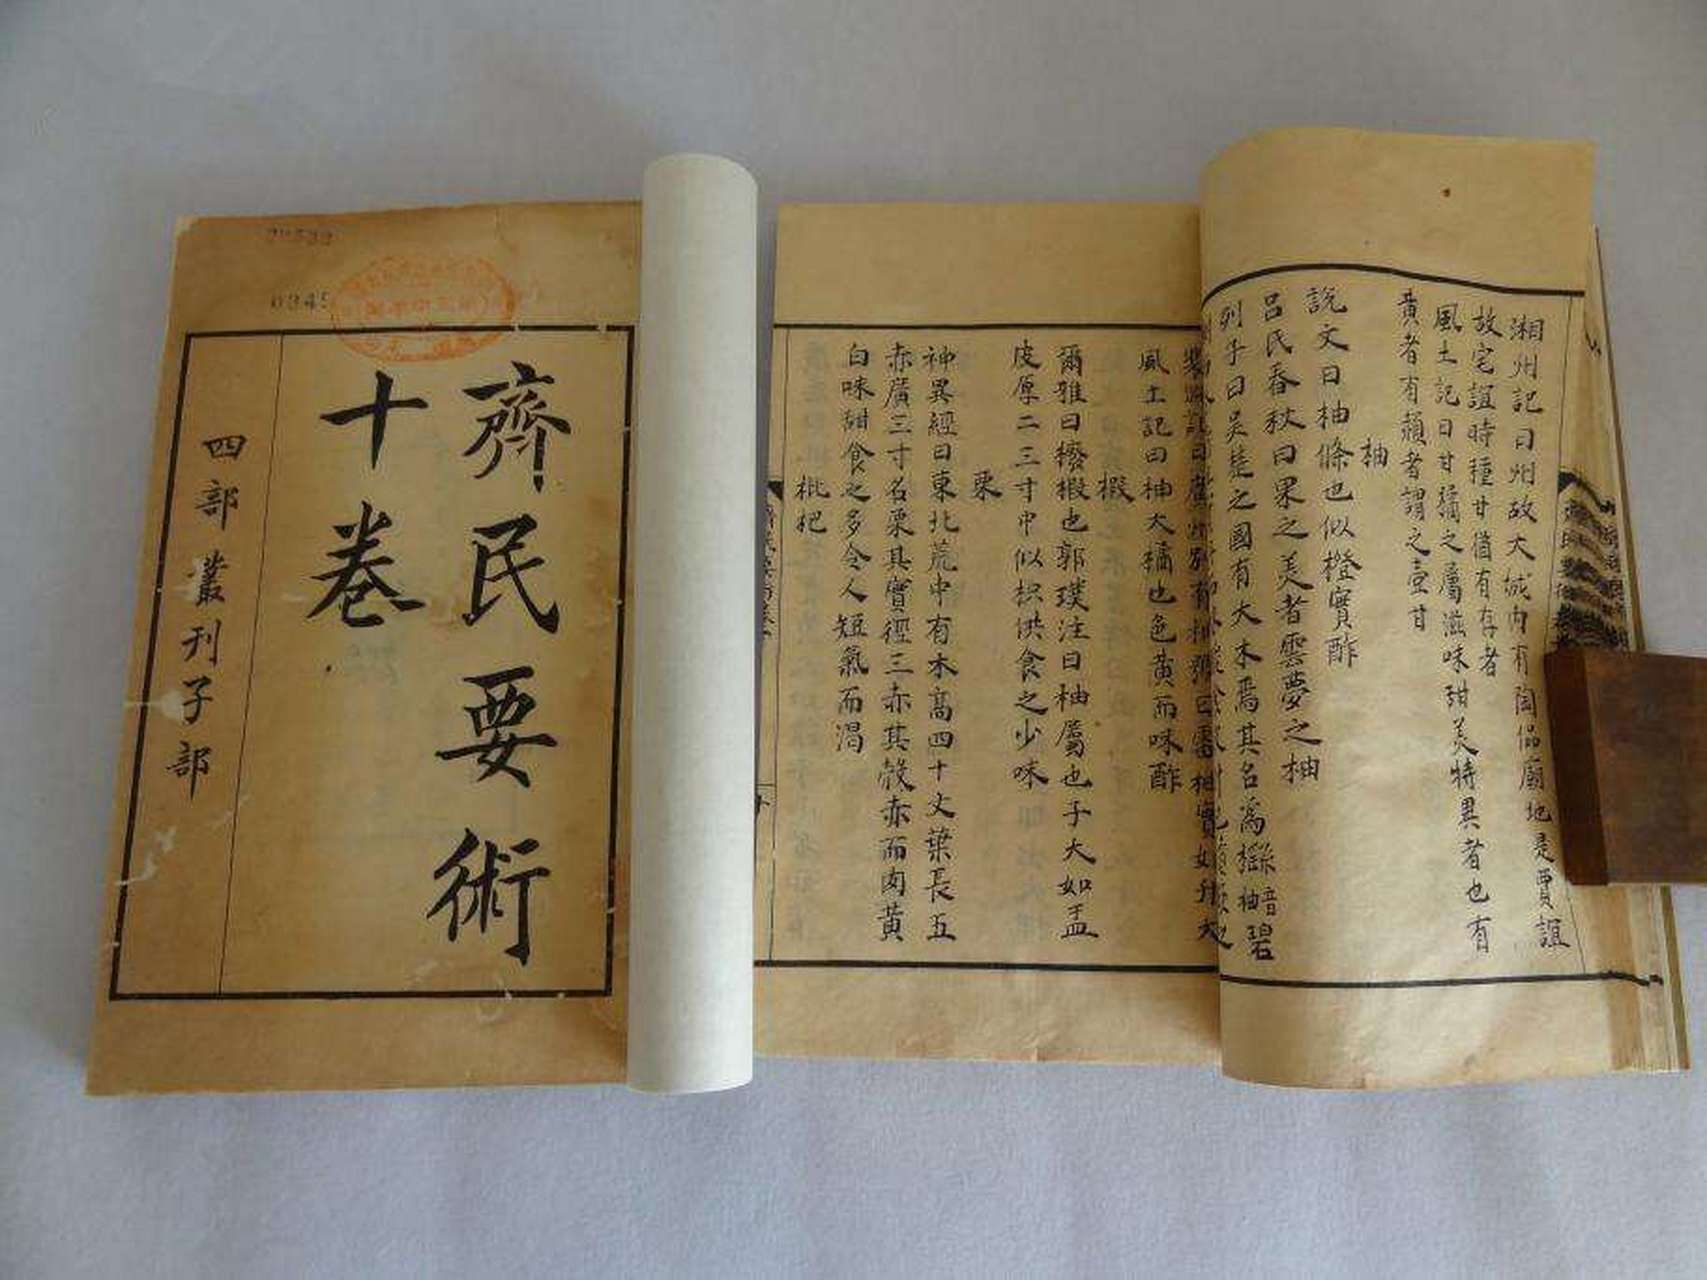 齊民要術
十卷
四部叢刊子部
湘州記曰州故大城內有陶侃廟地是賈誼
故宅誼時種甘猶有存者
風土記曰甘橘之屬滋味甜美特異者也有
黃者有頳者謂之壺甘
柚
說文曰柚條也似橙實酢
呂氏春秋曰果之美者雲夢之柚
列子曰吳楚之國有大木焉其名爲櫾 音柚 碧
風土記曰柚大橘也色黃而味酢
椵
爾雅曰櫠椵也郭璞注曰柚屬也子大如盂
皮厚二三寸中似枳供食之少味
栗
神異經曰東北荒中有木高四十丈葉長五
赤廣三寸名栗其實徑三赤其殼赤而肉黃
白味甜食之多令人短氣而渴
枇杷